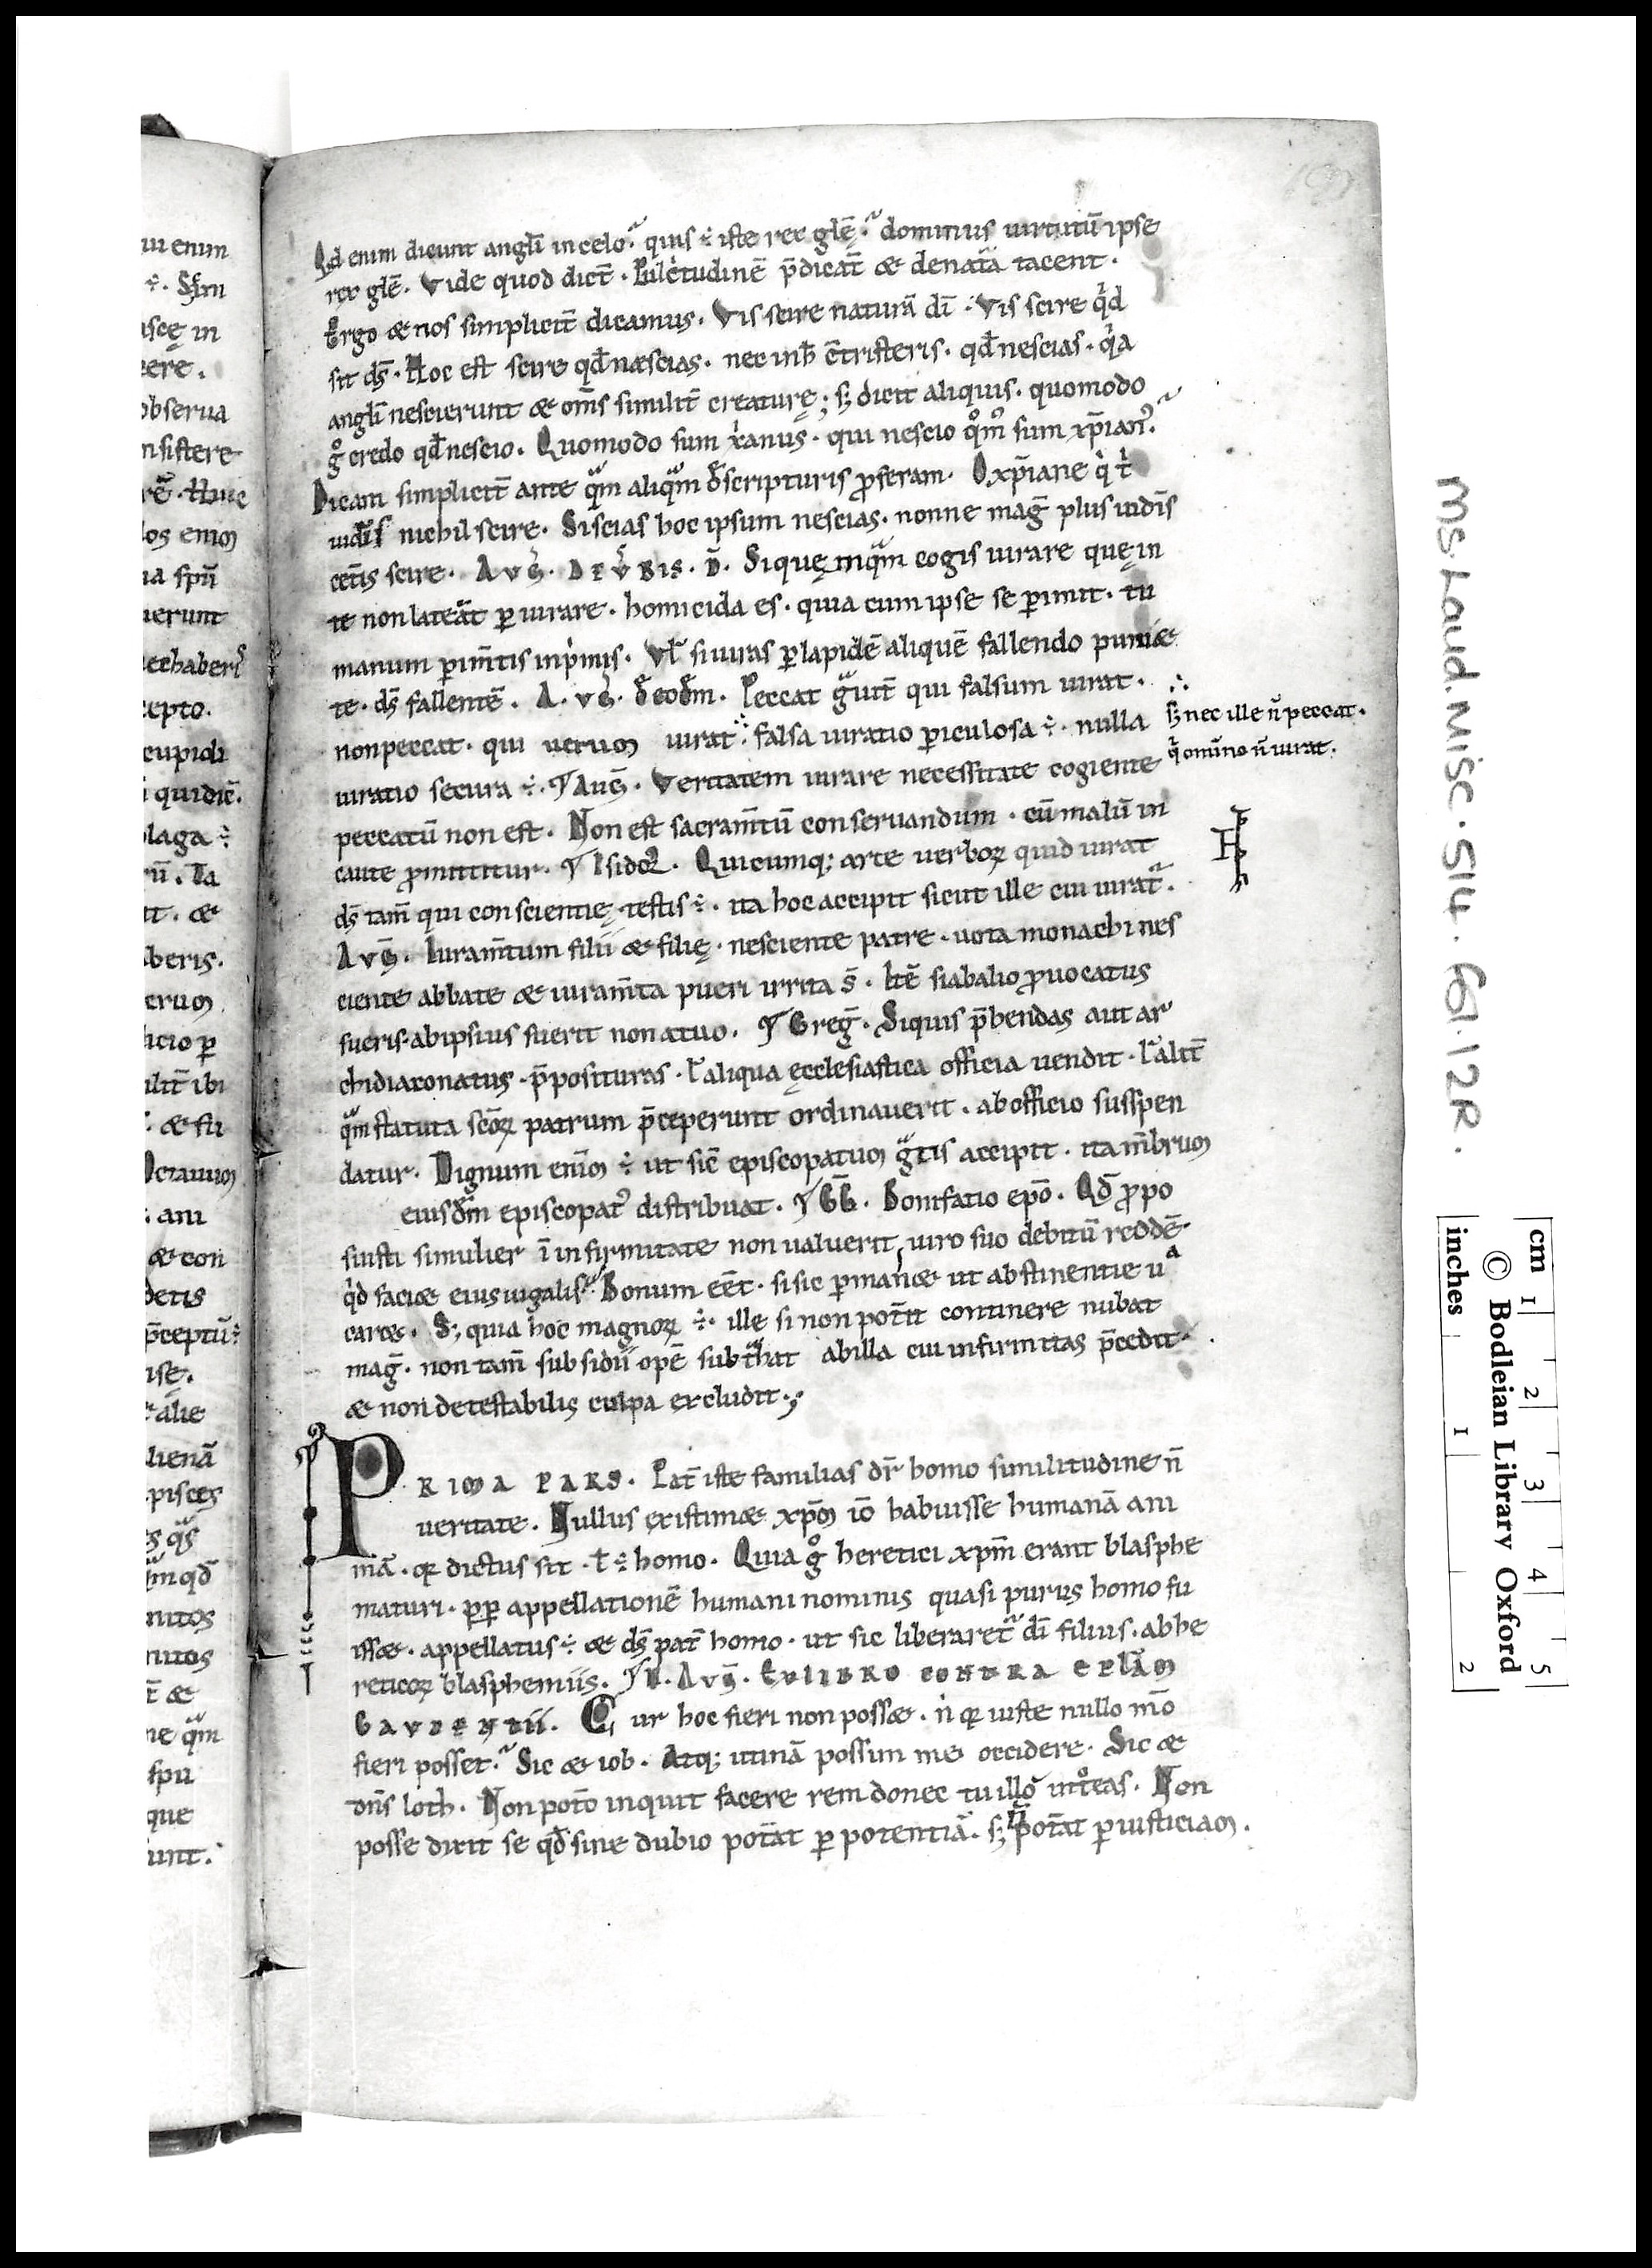 Qd enim dicunt angłi in celo? quis ÷ iste rex glę̄? dominus uirtutū ipse
rex glē. Vide quod dicē. Pulcritudinē p̄dicāt & de natura tacent.
Ergo & nos simplicit̄ dicamus. Vis scire naturā dī. Vis scire qid
sit ds̄. Hoc est scire qđ nescias. nec in hoc c̄tristeris. qđ nescias. qia
angłi nescierunt & om̄s similit̄ creaturę; s; dicit aliquis. quomodo
go credo qđ nescio. Quomodo sum xp̄ianus. qui nescio qom̄ sum xp̄ian9?
Dicam simplicit̄ ante qam aliqam đ scripturis p̱feram. O xp̄iane qi ti
uideris nichil scire. Si scias hoc ipsum nescias. nonne maḡ plus uidīs
cet̄is scire. AVG. DE VERBIS. D̄. Si quę mqam cogis iurare quę in
te non lateat p̱iurare. homicida es. quia cum ipse se p̱imit. tu
manum p̱im̄tis inp̱imis. Vł si iuras p̱ lapidē aliquē fallendo puni&
te. ds̄ fallentē. AVG. đ eođm. Peccat grauit̄ qui falsum iurat. ∴
s; nec ille n̄ peccat.
q omīno n̄ iurat.
non peccat. qui uerum iurat: falsa iuratio p̱iculosa ÷. nulla
iuratio secura ÷. Auḡ. Veritatem iurare necessitate cogente
peccatū non est. Non est sacram̄tū conseruandum. cū malū in
caute p̱mittitur. Isidor̄. Quicumq; arte uerboꝝ quid iurat
ds̄ tam̄ qui conscientię testis ÷. ita hoc accipit sicut ille cui iurat̄.
AVḠ. Iuram̄tum filii & filię. nesciente patre. uota monachi nes
ciente abbate & iuram̄ta pueri irrita s̄. Itē si ab alio p̱uocatus
fueris. ab ipsius fuerit non a tuo. Greḡ. Siquis p̄bendas aut ar
chidiaconatus. p̄posituras. ł aliqua ęcclesiastica officia uendit. ł alit̄
qam statuta sc̄oꝝ patrum p̄ceperunt ordinauerit. ab officio suspen
datur. Dignum enim ÷ ut sic̄ episcopatum gatis accipit. ita m̄brum
eiusđm episcopat9 distribuat. GG. Bonifatio ep̄o. Qđ p̱po
suisti si mulier ī infirmitate non ualuerit, uiro suo debitū reddē.
qid faci& eius iugalis? Bonum eēt. si sic p̱man& ut abstinentie ua
car&. S; quia hoc magnoꝝ ÷. ille si non pot̄it continere nubat
maḡ. non tam̄ subsidii opē subtrahat ab illa cui infirmitas p̄cedit.
& non detestabilis culpa excludit.
PRIMA PARS. Pat̄ iste familias dr̄ homo similitudine n̄
ueritate. Nullus existim& xp̄m iō habuisse humanā ani
mā. qꝛ dictus sit. homo. Quia go heretici xp̄m erant blasphe
maturi. p̱p̱ appellationē humani nominis quasi purus homo fu
iss&. appellatus ÷ & ds̄ pat̄ homo. ut sic liberaret̄ dī filius. ab he
reticoꝝ blasphemiis. AVḠ. EX LIBRO CONTRA EPLAM
GAVDENTII. Cur hoc fieri non poss&. qꝛ iuste nullo mō
fieri posset? Sic & iob. Atq; utinā possim me occidere. Sic &
dn̄s loth. Non pot̄o inquit facere rem donec tu illo int̄eas. Non
posse dixit se qđ sine dubio pot̄at p̱ potentiā. s; n̄ pot̄at p̱ iusticiam.
MS. Laud. Misc. 514. fol. 12R.
cm 1 2 3 4 5
© Bodleian Library Oxford
inches 1 2